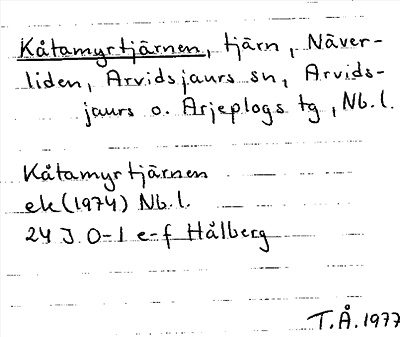 Kåtamyrtjärnen, tjärn, Näver-
liden, Arvidsjaurs sn, Arvids-
jaurs o. Arjeplogs tg, Nb.l.
Kåtamyrtjärnen
ek (1974) Nb.l.
24 J 0-1 e-f Hålberg
T.Å. 1977